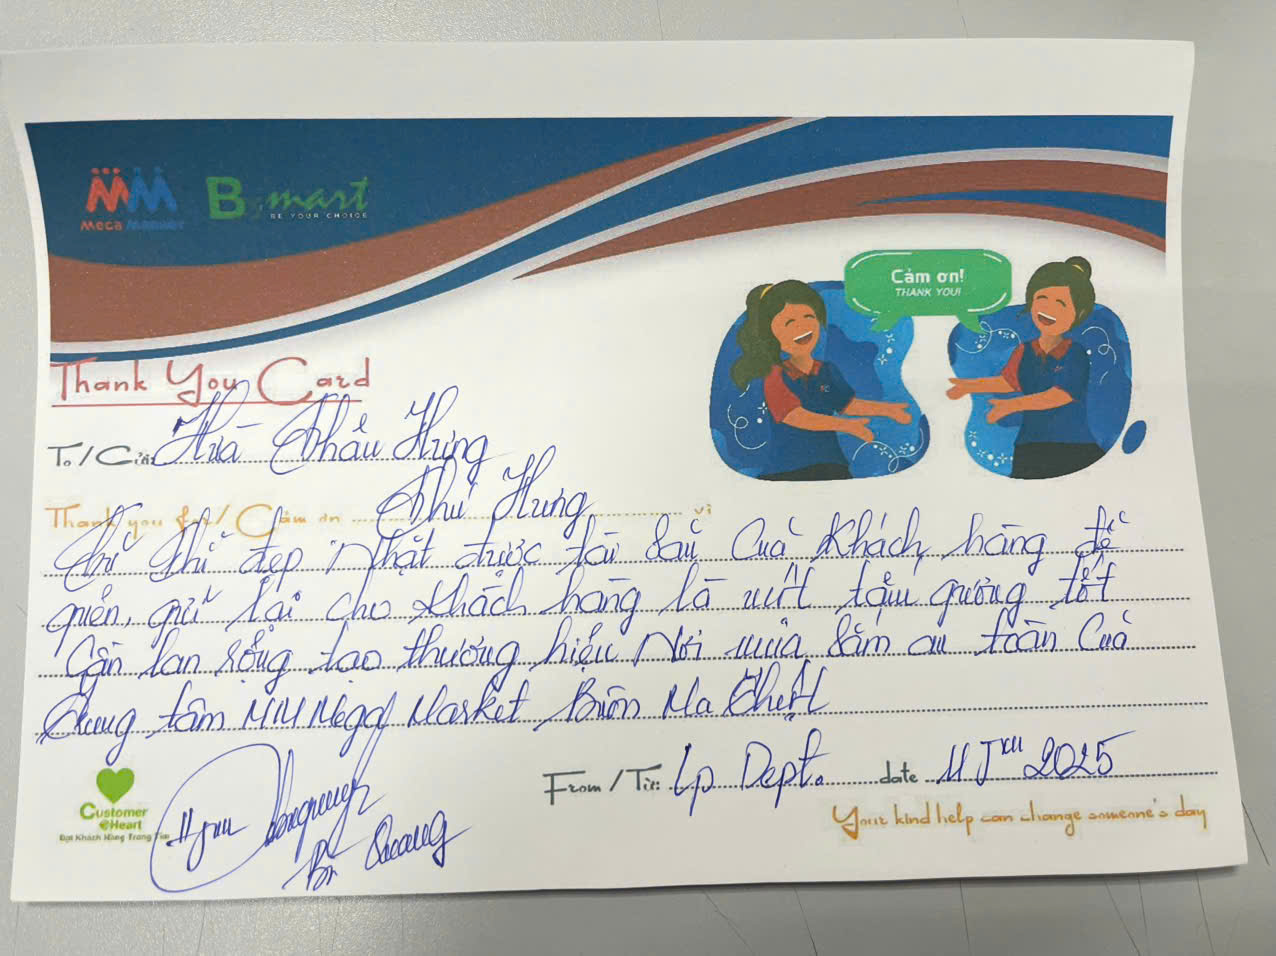 MM B's mart
MEGA Market BE YOUR CHOICE
Cảm ơn!
THANK YOU!
Thank You Card
To/Gửi: Hứa Châu Hưng
Thank you for/ Cảm ơn Chú Hưng vì
cử chỉ đẹp Nhặt được tài sản Của Khách hàng để
quên, gửi lại cho khách hàng là một tấm gương tốt
Cần lan rộng tạo thương hiệu Nơi mua sắm an toàn Của
Chung tâm MM Mega Market Buôn Ma Thuột
From/Từ: Lp Dept. date 11 2025
Customer
@Heart
Đặt Khách Hàng Trong Tim
Your kind help can change someone's day
Quang